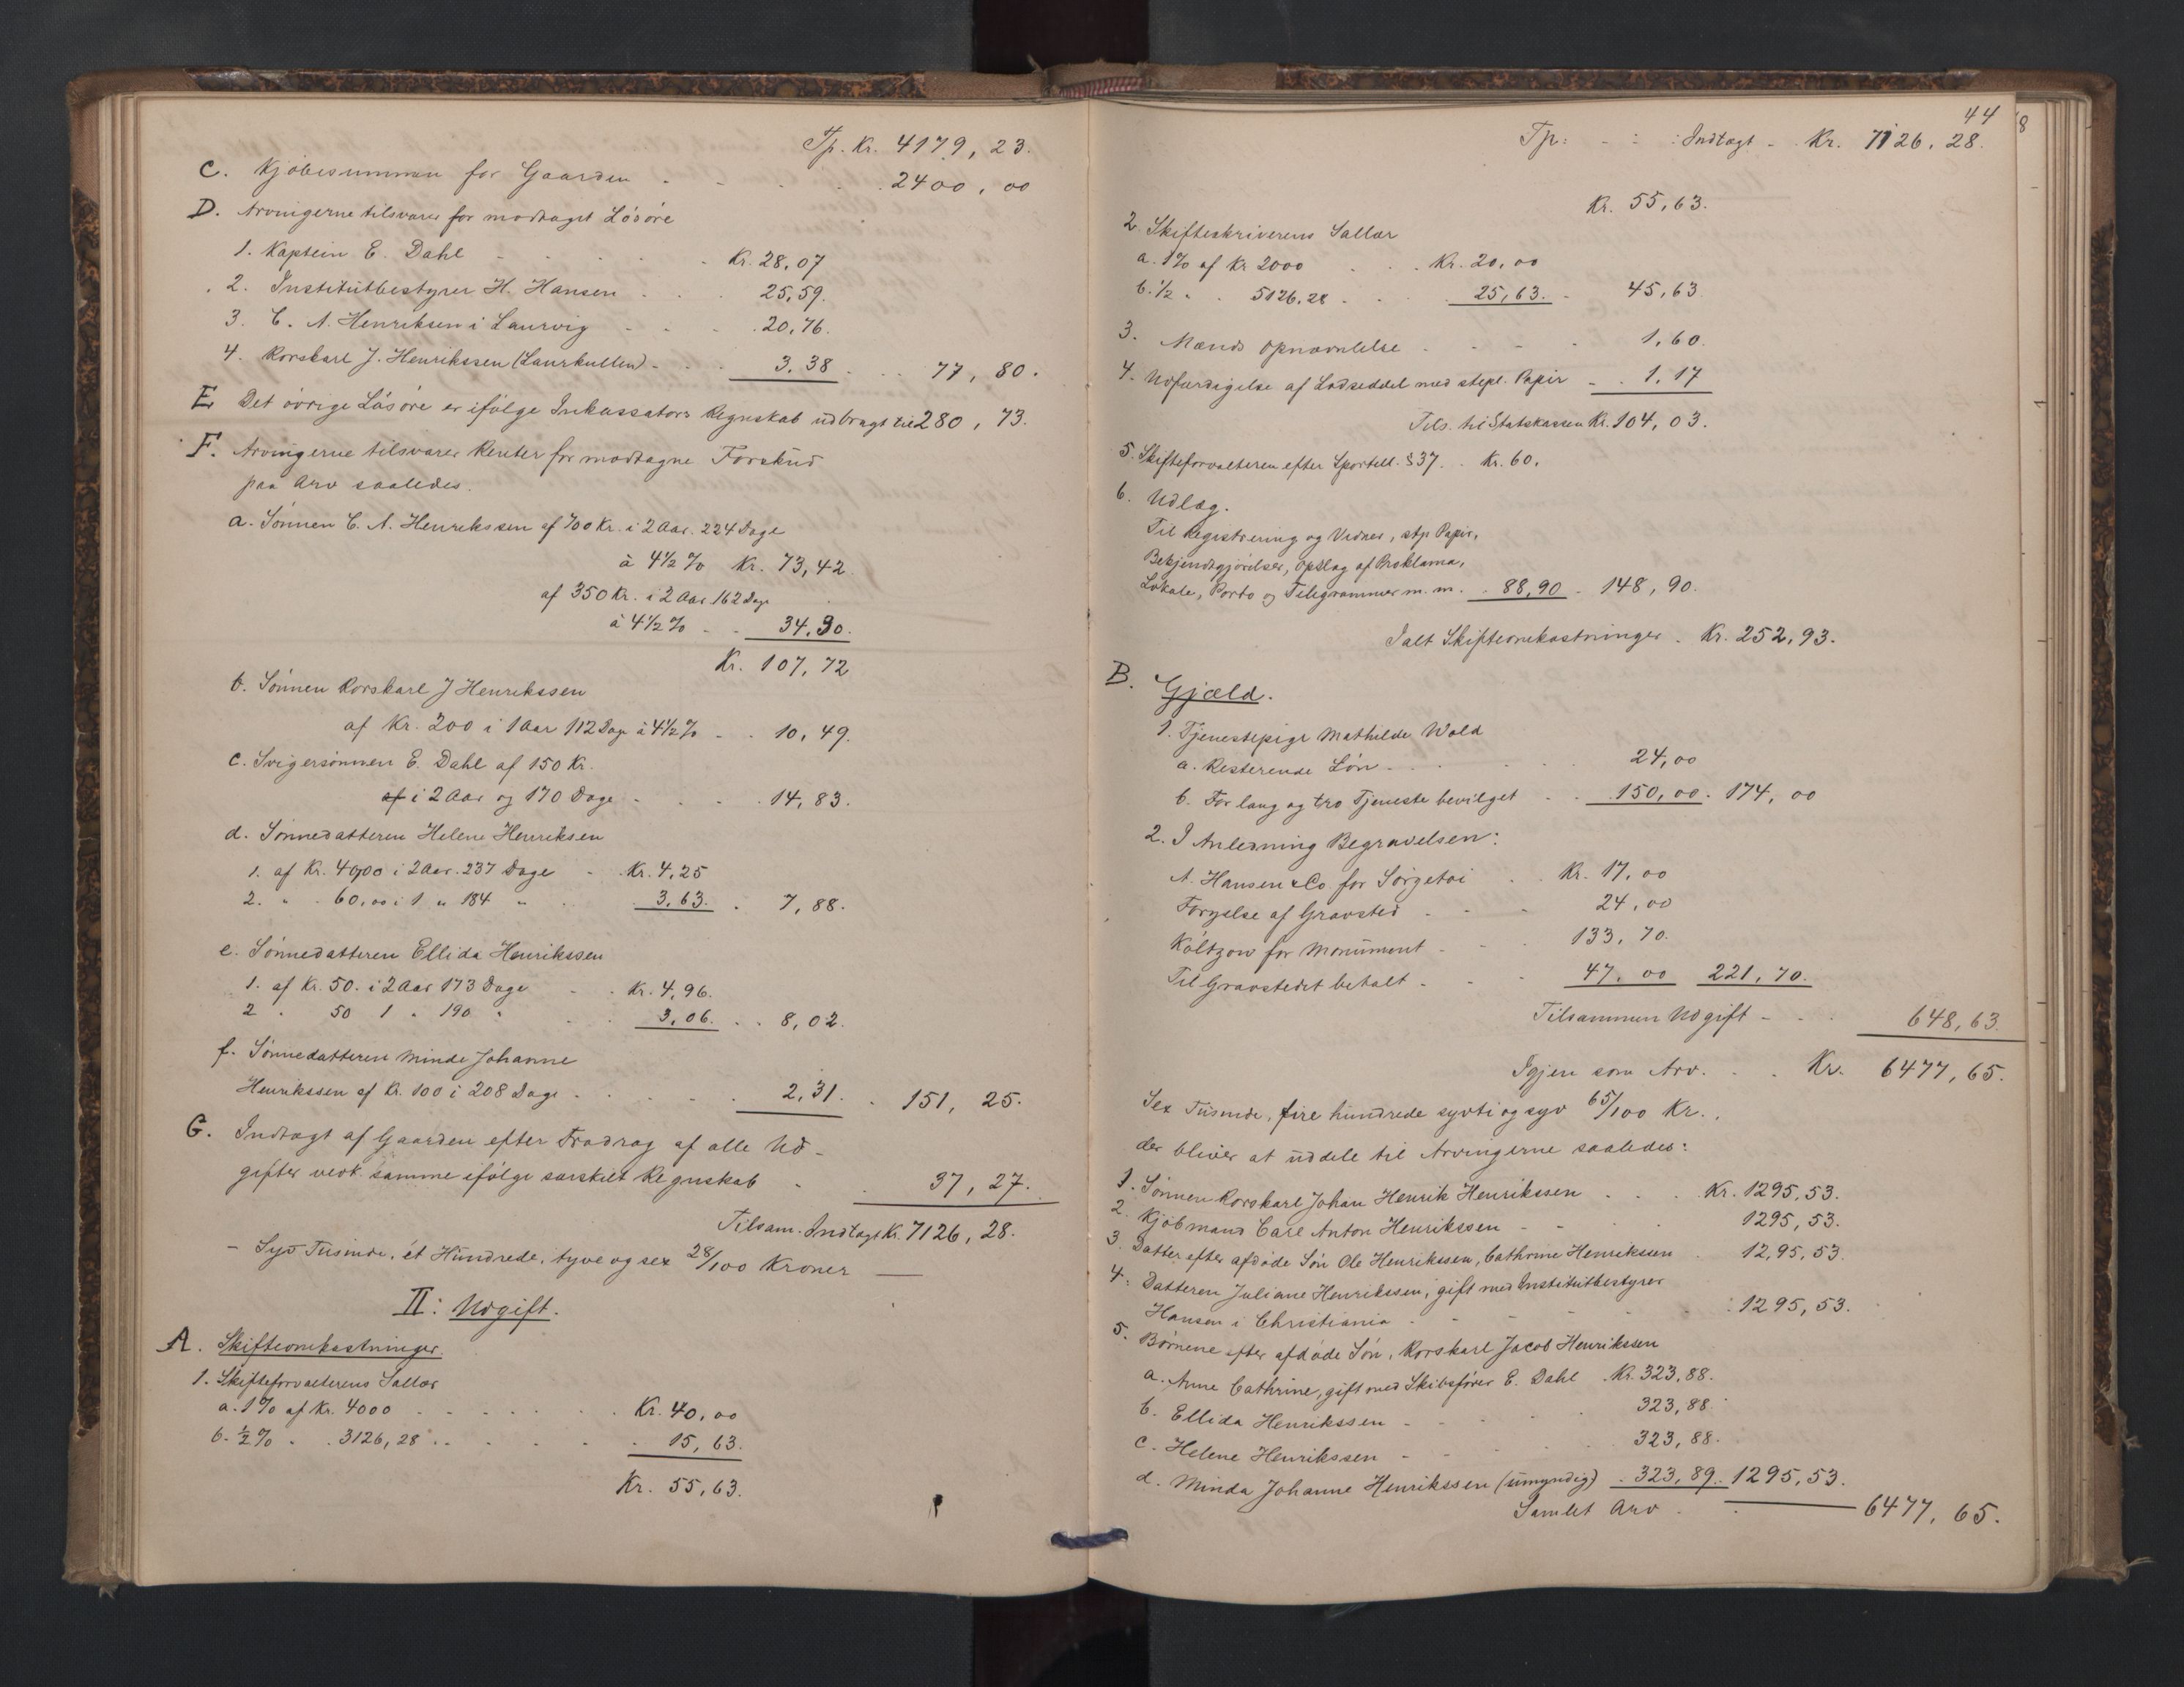 Tp. Kr. 4179, 23.
C. Kjöbesummen for Gaarden . . . . 2400, 00
D. Arvingerne tilsvarer for modtaget Lösöre
1. Kaptein E. Dahl - . . . . Kr. 28,07
2. Institutbestyrer H. Hansen . . . 25,59.
3. C. A. Henriksen i Laurvig - . . . 20,76.
4. Korskarl J. Henrikssen (Laurkullen) - . . 3,38 . . . 77, 80.
E. Det övrige Lösöre er ifölge Inkassators Regnskab udbragt til 280, 73.
F. Arvingerne tilsvarer Renter for modtagne Forskud
paa Arv saaledes.
a. Sönnen C. A. Henrikssen af 700 Kr. i 2 Aar. 224 Dage
à 4½ % Kr. 73,42.
af 350 Kr. i 2 Aar 162 Dage
à 4½ % - . 34,30.
Kr. 107,72
b. Sönnen Korskarl J Henrikssen
af Kr. 200 i 1 Aar 112 Dage à 4½ % - . 10,49.
c. Svigersönnen E. Dahl af 150 Kr.
af i 2 Aar og 170 Dage - . . . 14,83.
d. Sönnedatteren Helene Henriksen
1. af Kr. 40,00 i 2 Aar. 237 Dage - . Kr. 4,25
2. " . 60,00 i 1 " 184 " . . 3,63. . 7,88.
e. Sönnedatteren Ellida Henrikssen
1. af Kr. 50. i 2 Aar 173 Dage - . Kr. 4,96.
2 . 50 1 " 190 " . . 3,06. . . 8,02.
f. Sönnedatteren Minde Johanne
Henrikssen af Kr. 100 i 208 Dage . . . . . 2,31. . 151, 25.
G. Indtægt af Gaarden efter Fradrag af alle Ud-
gifter vedk. samme ifölge særskilt Regnskab - . 37, 27.
Tilsam. Indtægt Kr. 7126, 28.
- Syv Tusinde, ét Hundrede, tyve og sex 28/100 Kroner —
II: Udgift.
A. Skifteomkostninger.
1. Skifteforvalterens Sallær
a. 1% af Kr. 4000 . . . . . Kr. 40,00
b. ½ % . . 3126,28 . . . . . 15,63.
Kr. 55,63.
44
8
Tp: - : : Indtægt - . Kr. 7126, 28.
Kr. 55,63.
2. Skifteskriverens Sallær
a. 1% af Kr 2000 . . . Kr. 20,00
b. ½ " . 5126,28 . . . 25,63. . 45,63
3. Mænds Opnævnelse . - - - 1,60.
4. Udfærdigelse af Lodseddel med stepl. Papir - . 1,17
Tils. til Statskassen Kr. 104, 03.
5. Skifteforvalteren efter Sportell. §37. . Kr. 60.
6. Udlæg.
Til Registrering og Vidner, stp Papir,
Bekjendtgjörelser, Opslag af Proklama,
Lokale, Porto og Telegrammer m. m. . 88,90 . 148, 90.
Ialt Skifteomkostninger . Kr. 252,93.
B. Gjæld.
1. Tjenestepige Mathilde Wold
a. Resterende Lön . . . . . 24,00
b. For lang og tro Tjeneste bevilget . . 150,00. 174, 00
2. I Anledning Begravelsen:
A. Hansen & Co for Sörgetöi . Kr. 17,00
Fornyelse af Gravsted . . - 24,00
Költzow for Monument - . . 133, 70.
Til Gravstedet betalt - . . 47, 00 221, 70.
Tilsammen Udgift - . . 648, 63.
Igjen som Arv. . . Kr. 6477, 65.
Sex Tusinde, fire hundrede sytti og syv 65/100 Kr.,
der bliver at uddele til Arvingerne saaledes:
1. Sönnen Korskarl Johan Henrik Henrikssen . . . Kr. 1295,53.
2. Kjöbmand Carl Anton Henrikssen - - . 1295, 53.
3. Datter efter afdöde Sön Ole Henrikssen, Cathrine Henrikssen . 12,95,53.
4. Datteren Juliane Henrikssen, gift med Institutbestyrer
Hansen i Christiania . - - . . 1295, 53.
5. Börnene efter afdöde Sön, Korskarl Jacob Henrikssen
a. Anne Cathrine, gift med Skibsförer E. Dahl . Kr. 323,88.
b. Ellida Henrikssen - . . . 323,88.
c. Helene Henrikssen - - . . 323,88.
d. Minda Johanne Henrikssen (umyndig) . 323,89. 1295,53.
Samlet Arv . . 6477, 65.